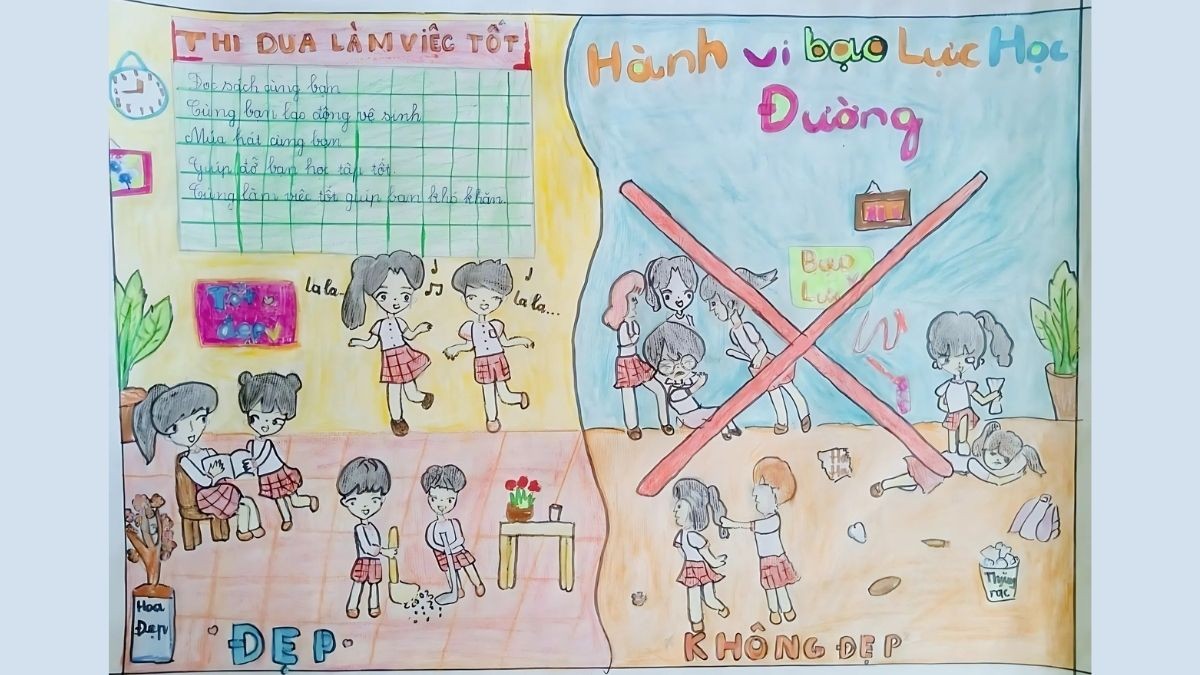 THI ĐUA LÀM VIỆC TỐT
Đọc sách cùng bạn
Cùng bạn lao động vệ sinh
Múa hát cùng bạn
Giúp đỡ bạn học tập tốt.
Cùng làm việc tốt giúp bạn khó khăn.
Tốt
đẹp
la la...
la la...
Hoa
Đẹp
ĐẸP
Hành vi bạo Lực Học
Đường
Bạo
Lực
Thùng
rác
KHÔNG ĐẸP